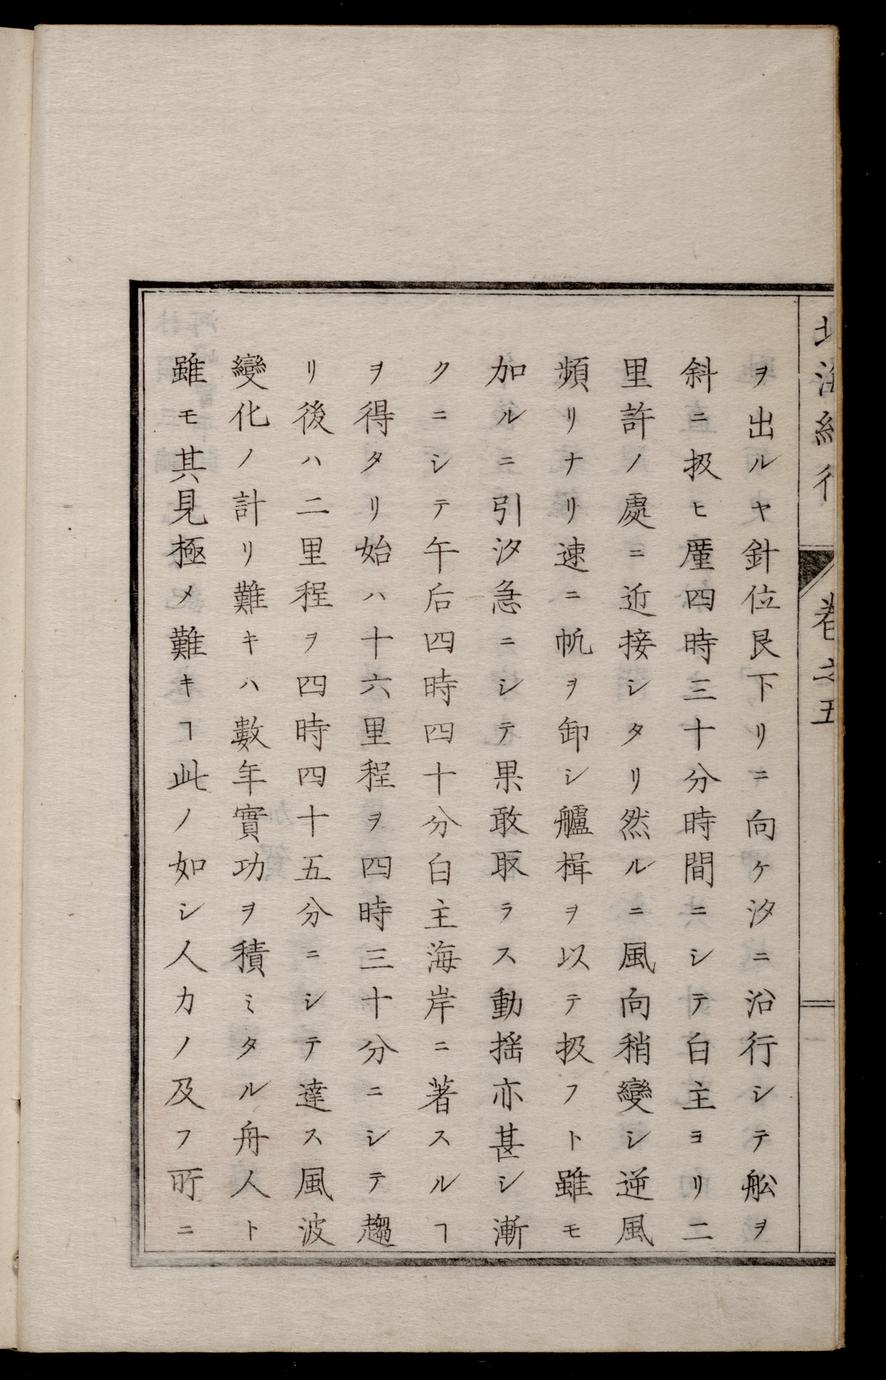 北海紀行
卷之五
ヲ出ルヤ針位艮下リニ向ケ汐ニ沿行シテ舩ヲ
斜ニ扱ヒ厪四時三十分時間ニシテ白主ヨリ二
里許ノ處ニ近接シタリ然ルニ風向稍變シ逆風
頻リナリ速ニ帆ヲ卸シ艫楫ヲ以テ扱フト雖モ
加ルニ引汐急ニシテ果敢取ラス動揺亦甚シ漸
クニシテ午后四時四十分白主海岸ニ著スルヿ
ヲ得タリ始ハ十六里程ヲ四時三十分ニシテ趨
リ後ハ二里程ヲ四時四十五分ニシテ達ス風波
變化ノ計リ難キハ數年實功ヲ積ミタル舟人ト
雖モ其見極メ難キヿ此ノ如シ人力ノ及フ所ニ